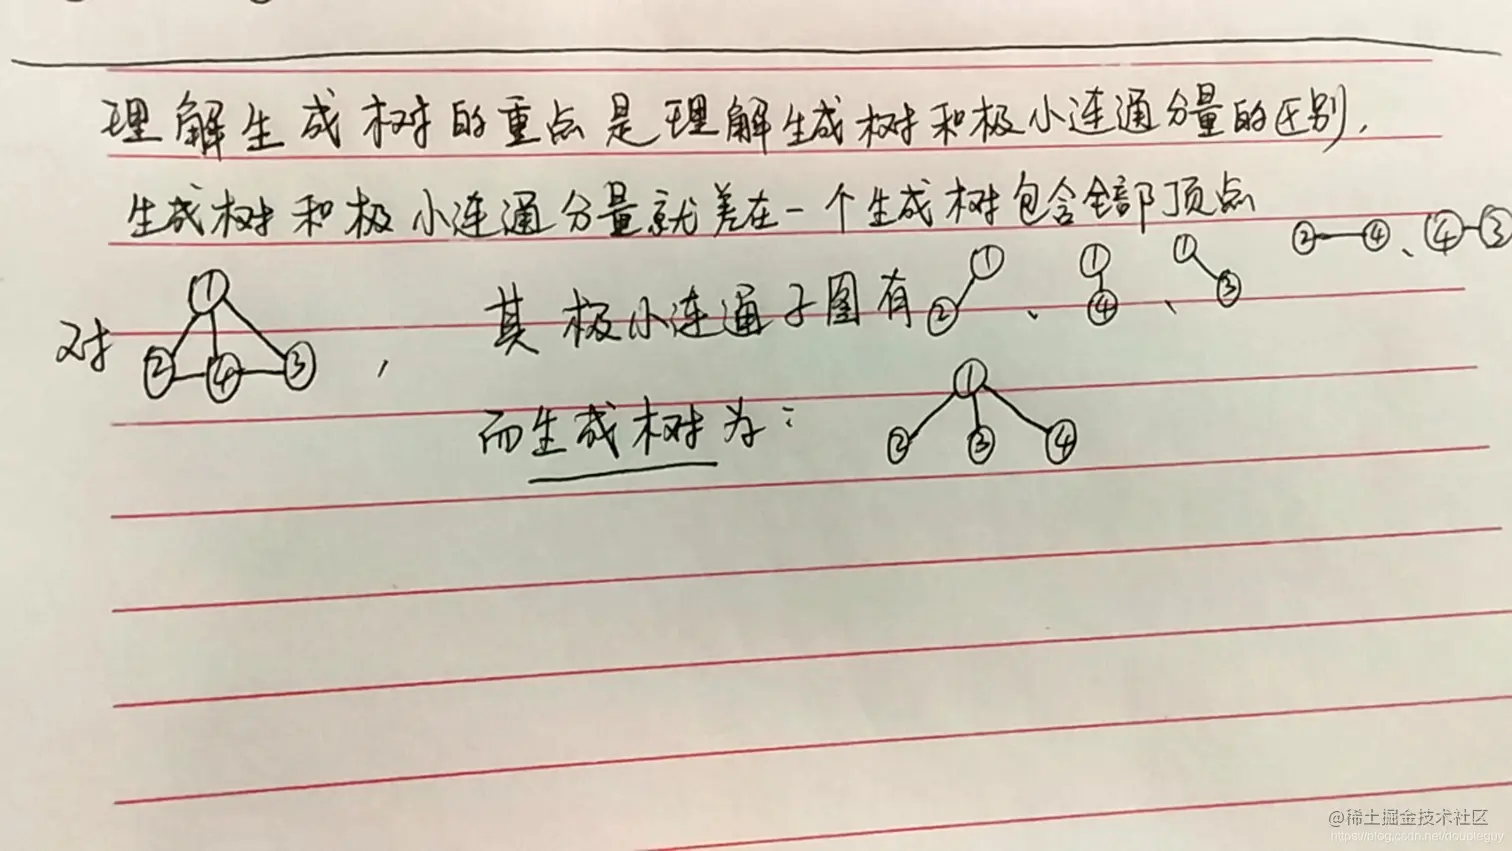 理解生成树的重点是理解生成树和极小连通分量的区别,
生成树和极小连通分量就差在一个生成树包含全部顶点
② ④、④ ③
对 ① ② ④ ③ , 其极小连通子图有 ① ②、① ④、① ③
而生成树为: ① ② ③ ④
@稀土掘金技术社区
https://blog.csdn.net/doubleguy